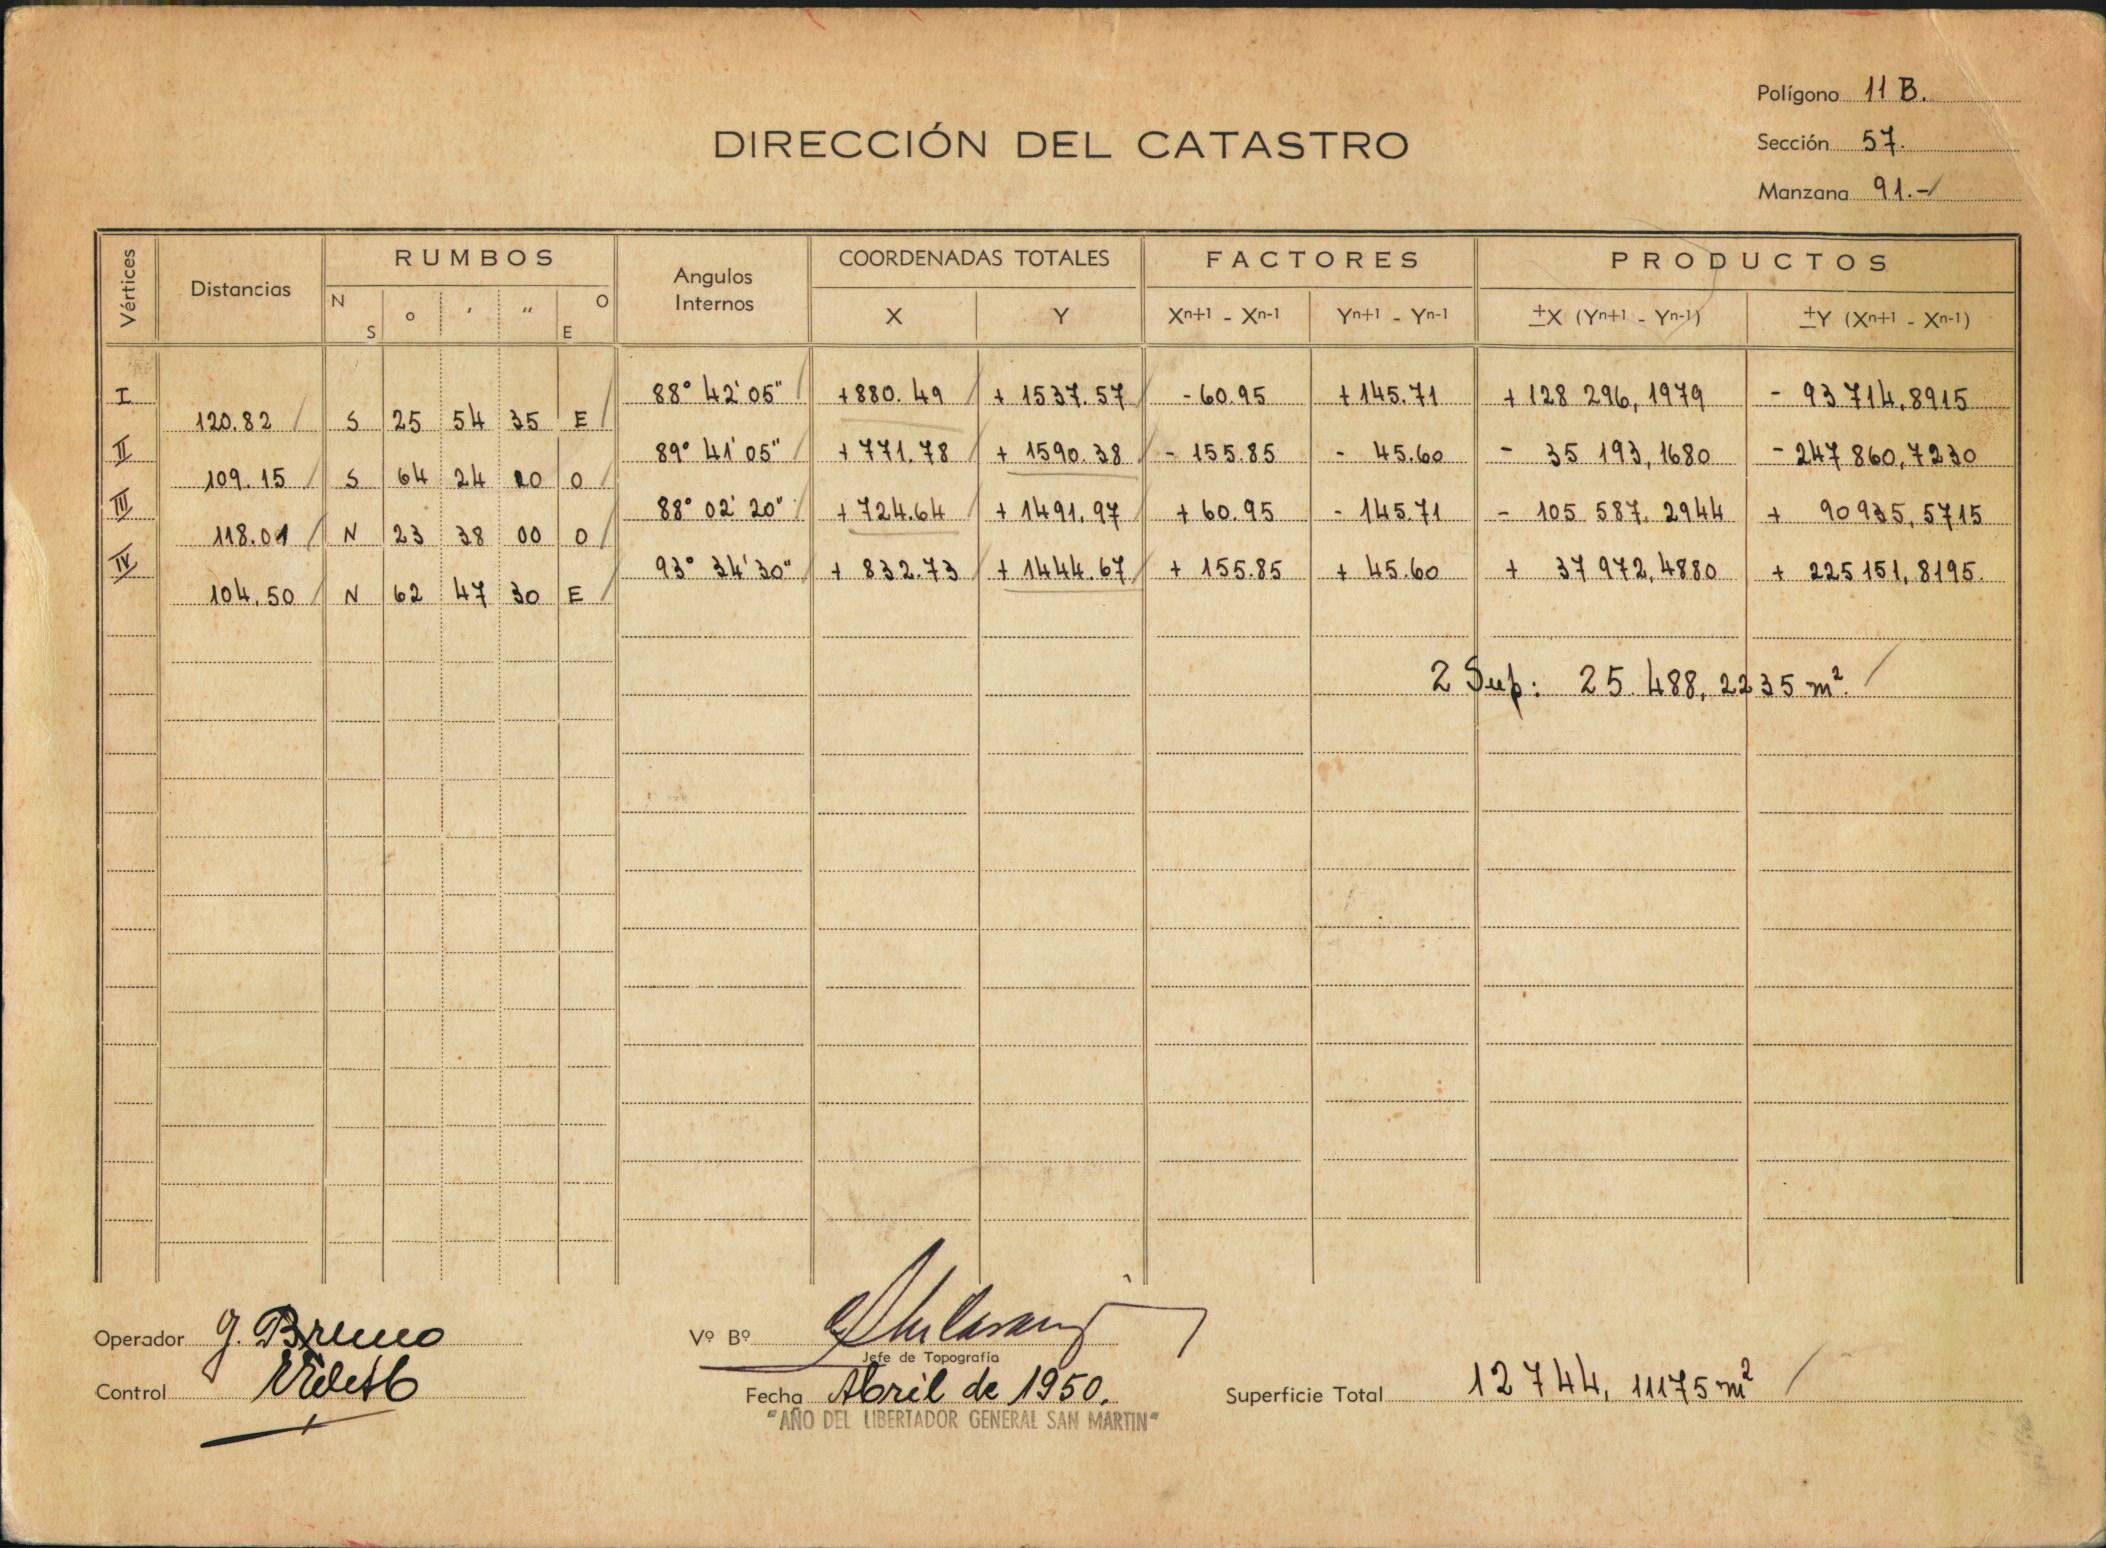 Polígono 11 B.
DIRECCIÓN DEL CATASTRO
Sección 57.
Manzana 91.-
Vértices Distancias RUMBOS Angulos Internos COORDENADAS TOTALES FACTORES PRODUCTOS
N S o ' " O E X Y Xn+1 - Xn-1 Yn+1 - Yn-1 ±X (Yn+1 - Yn-1) ±Y (Xn+1 - Xn-1)
I 88° 42' 05" +880.49 + 1537.57 - 60.95 + 145.71 + 128 296, 1979 - 93 714,8915
120.82 S 25 54 35 E
II 89° 41' 05" + 771.78 + 1590.38 - 155.85 - 45.60 - 35 193,1680 - 247 860,7230
109.15 S 64 24 20 O
III 88° 02' 20" + 724.64 + 1491,97 + 60.95 - 145.71 - 105 587, 2944 + 90 935,5715
118.01 N 23 38 00 O
IV 93° 34' 30" + 832.73 + 1444.67 + 155.85 + 45.60 + 37 972,4880 + 225 151,8195.
104.50 N 62 47 30 E
2 Sup: 25.488,2235 m².
Operador G. Bruno
Vº Bº
Jefe de Topografía
Control
Fecha Abril de 1950.
Superficie Total 12744, 11175 m²
"AÑO DEL LIBERTADOR GENERAL SAN MARTIN"